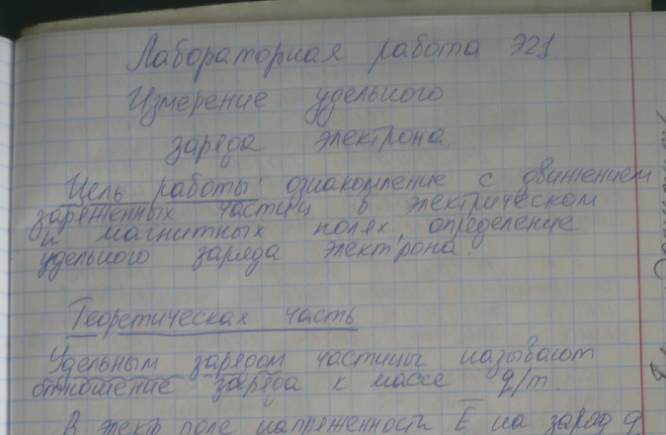 Лабораторная работа Э21
Измерение удельного
заряда электрона
Цель работы: ознакомление с движением
заряженных частиц в электрическом
и магнитных полях, определение
удельного заряда электрона.
Теоретическая часть
Удельным зарядом частицы называют
отношение заряда к массе q/m.
В электр поле напряженности E на заряд q